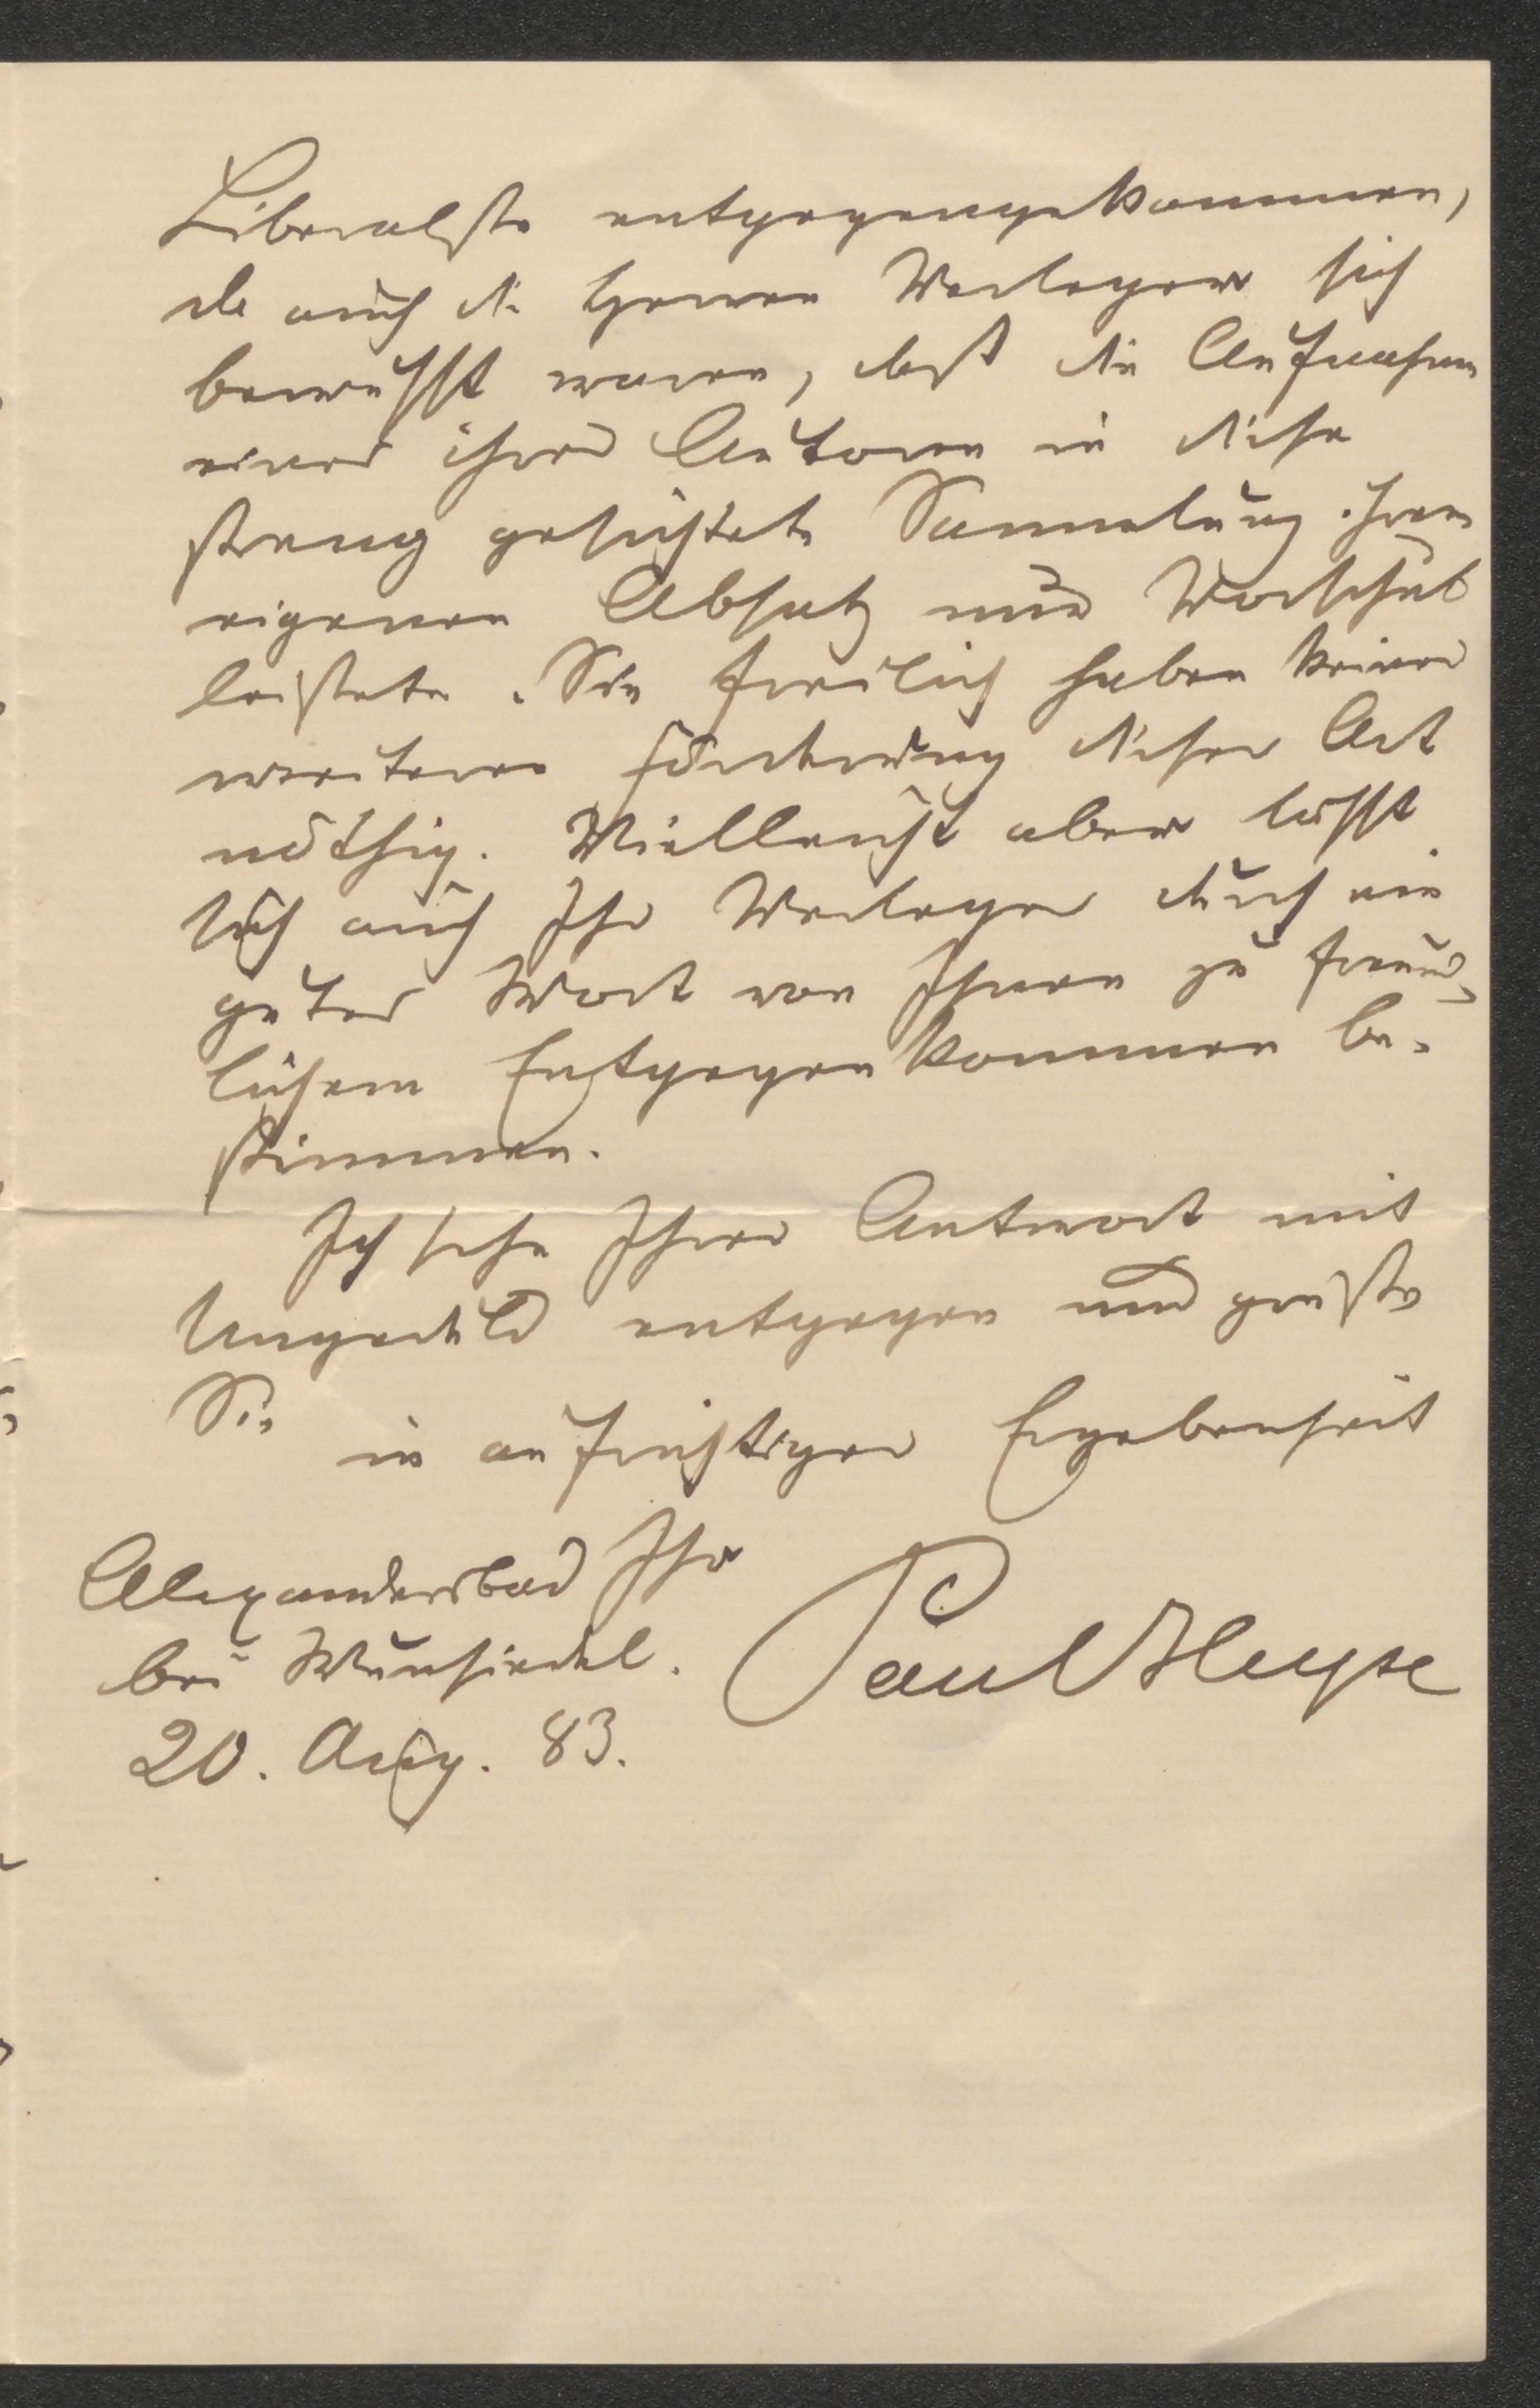 Liberalste entgegengekommen,
da auch die Herren Verleger sich
bewußt waren, daß die Aufnahme
eines ihrer Autoren in diese
streng gesichtete Sammlung ihrem
eigenen Absatz nur Vorschub
leistete. Sie freilich haben keiner
weiteren Förderung dieser Art
nöthig. Vielleicht aber läßt
sich auch Ihr Verleger durch ein
gutes Wort von Ihnen zu freund-
lichem Entgegenkommen be-
stimmen.
Ich sehe Ihrer Antwort mit
Ungeduld entgegen und grüße
Sie
in aufrichtiger Ergebenheit
Ihr
Paul Heyse
Alexandersbad
bei Wunsiedel.
20. Aug. 83.